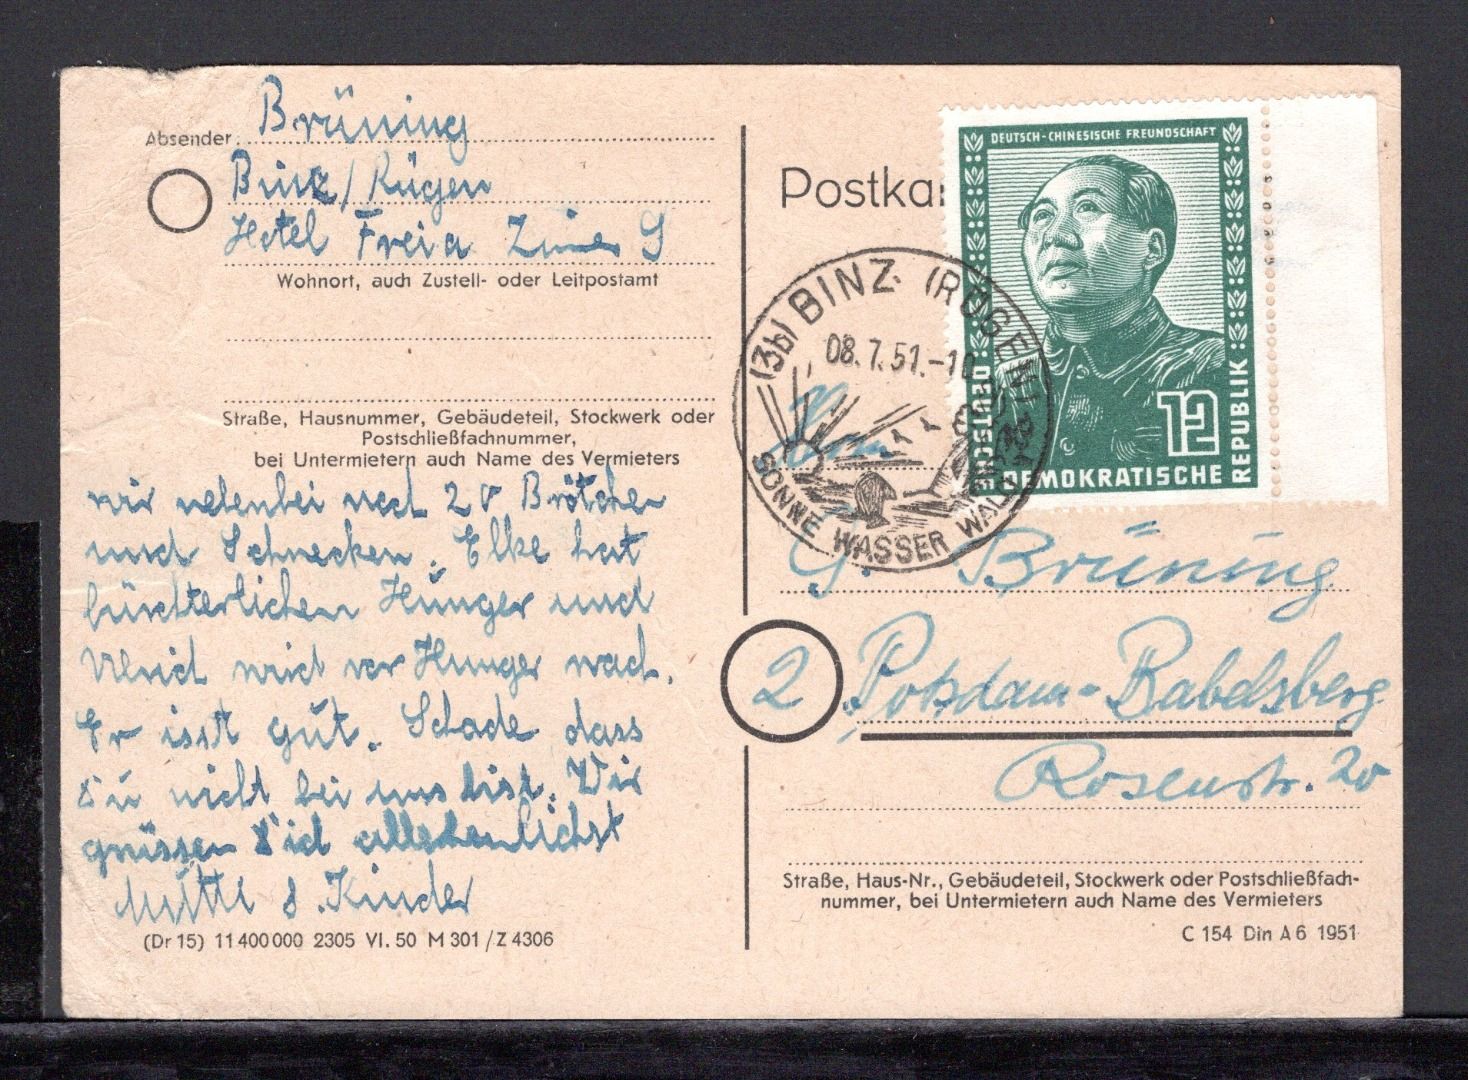 Absender Brüning
Binz/Rügen
Hotel Freia Zimmer 9
Wohnort, auch Zustell- oder Leitpostamt
Straße, Hausnummer, Gebäudeteil, Stockwerk oder
Postschließfachnummer,
bei Untermietern auch Name des Vermieters
wir nebenbei noch 20 Brötchen
und Schnecken. Elke hat
fürchterlichen Hunger und
wird vor Hunger wach.
Er isst gut. Schade dass
Du nicht bei uns bist. Wir
grüssen Dich allerherzlichst
Mutti & Kinder
(Dr 15) 11 400 000 2305 VI. 50 M 301 / Z 4306
Postkar
DEUTSCH-CHINESISCHE FREUNDSCHAFT
12
DEUTSCHE
DEMOKRATISCHE
REPUBLIK
(3b) BINZ (RÜGEN)
08.7.51.-10
SONNE WASSER WALD
Herrn
G. Brüning
2 Potsdam-Babelsberg
Rosenstr. 20
Straße, Haus-Nr., Gebäudeteil, Stockwerk oder Postschließfach-
nummer, bei Untermietern auch Name des Vermieters
C 154 Din A 6 1951